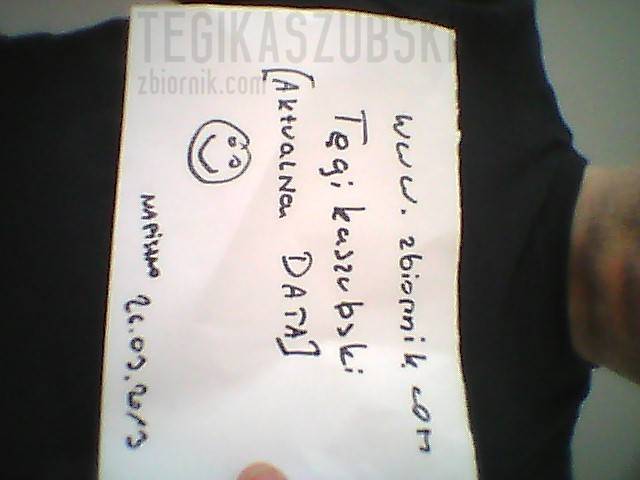 TEGIKASZUBSKI
zbiornik.com
www.zbiornik.com
Tęgi kaszubski
[AktuaLNa DATA]
26.03.2013